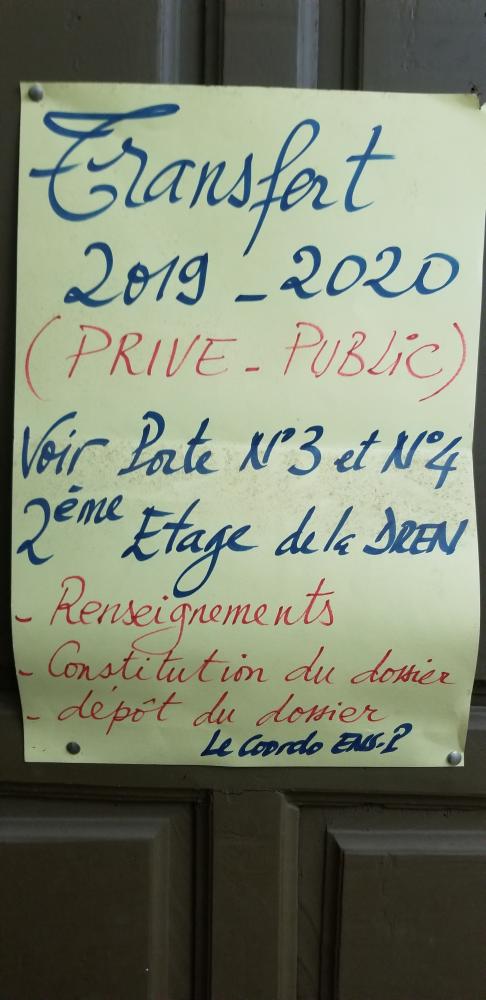 Transfert
2019 - 2020
(PRIVE - PUBLIC)
Voir Porte N°3 et N°4
2ème Etage de la DREN
- Renseignements
- Constitution du dossier
- dépôt du dossier
Le Coordo ENS-P